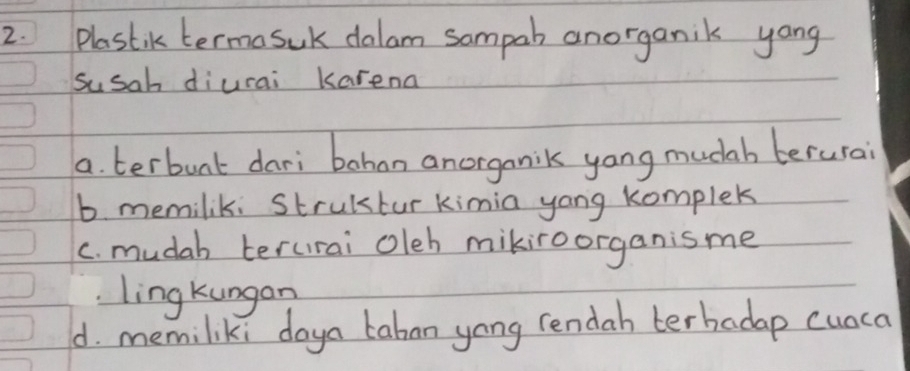 2. Plastik termasuk dalam sampah anorganik yang
susah diurai karena
a. terbuat dari bahan anorganik yang mudah terurai
b. memiliki struktur kimia yang komplek
c. mudah terurai oleh mikiroorganisme
. lingkungan
d. memiliki daya tahan yang rendah terhadap cuaca